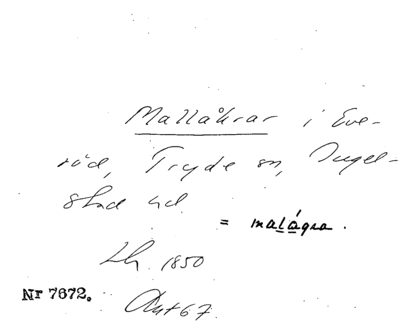 Mallåkrar i Eve-
röd, Tryde sn, Ingel-
stad hd
= malágra.
Lh 1850
Nr 7672. Ant 67.